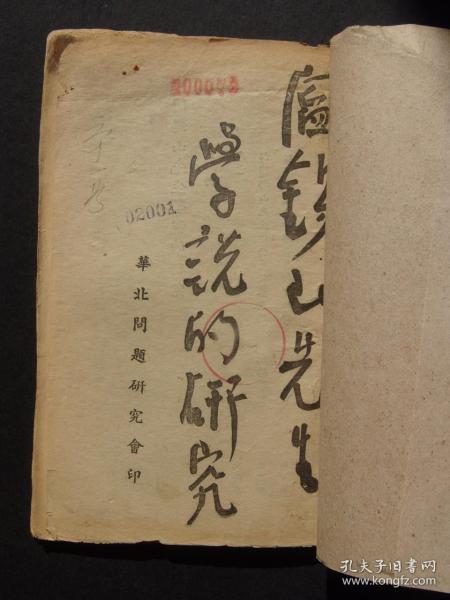 閻錫山先生
學說的研究
華北問題研究會印
02001
孔夫子旧书网
www.kongfz.com